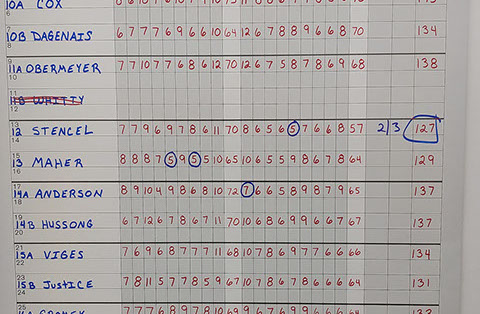 10A COX
10B DAGENAIS 6 7 7 7 6 9 6 6 10 64 12 6 7 8 8 9 6 6 8 70 134
8
9
11A OBERMEYER 7 7 10 7 7 6 8 6 12 70 12 6 7 5 8 7 8 6 9 68 138
10
11
11B WHITTY
12
13
12 STENCEL 7 7 9 6 9 7 8 6 11 70 8 6 5 6 5 7 6 6 8 57 2/3 127
14
15
13 MAHER 8 8 8 7 5 9 5 5 10 65 10 6 5 5 8 9 6 7 8 64 129
16
17
14A ANDERSON 8 9 10 4 9 8 6 8 10 72 7 6 6 5 8 9 8 7 9 65 137
18
19
14B HUSSONG 6 7 12 6 7 8 6 7 11 70 10 6 8 6 9 9 6 6 7 67 137
20
21
15A VIGES 7 6 9 6 8 7 7 7 11 68 10 7 8 6 9 7 7 6 6 66 134
22
23
15B JUSTICE 7 8 11 5 7 7 8 5 9 67 10 7 8 6 7 8 6 6 6 64 131
24